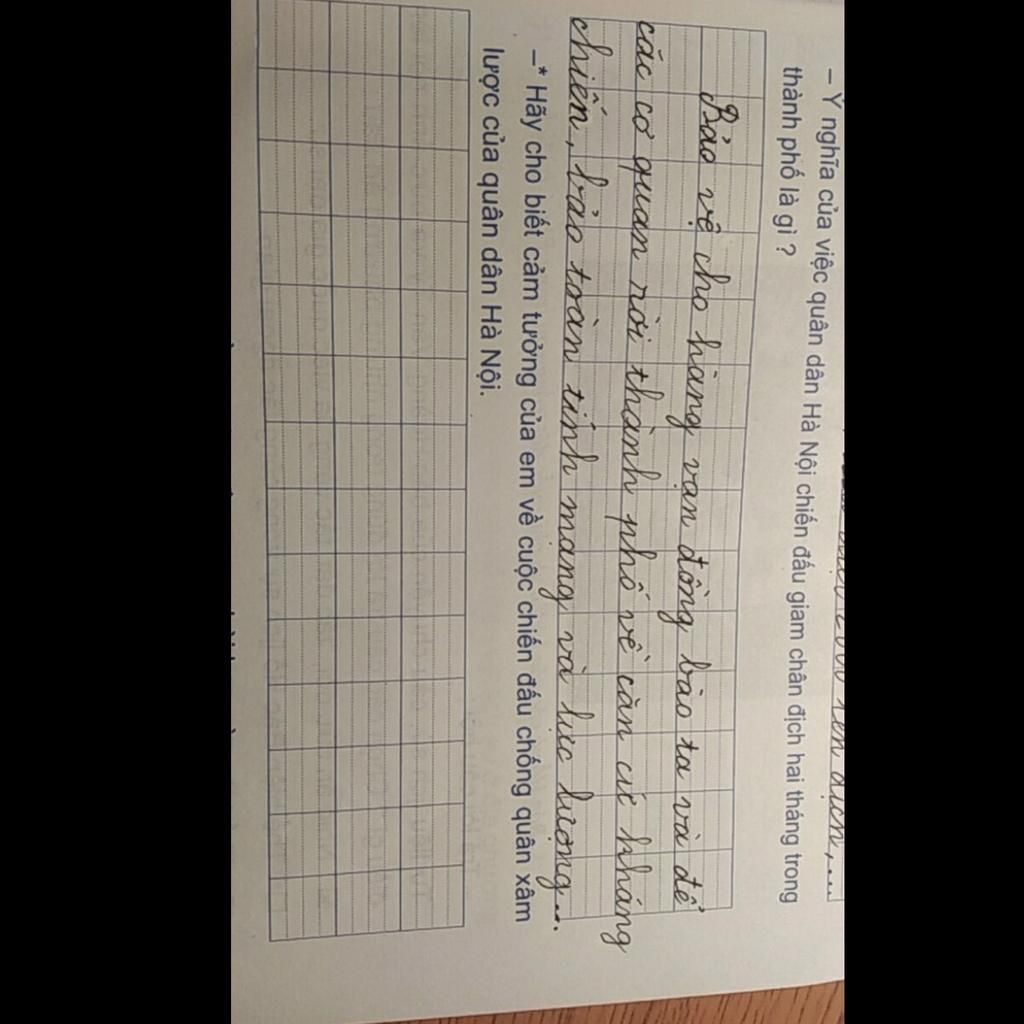 – Ý nghĩa của việc quân dân Hà Nội chiến đấu giam chân địch hai tháng trong
thành phố là gì ?
Bảo vệ cho hàng vạn đồng bào ta và để
các cơ quan rời thành phố về căn cứ kháng
chiến, bảo toàn tính mạng và lực lượng...
–* Hãy cho biết cảm tưởng của em về cuộc chiến đấu chống quân xâm
lược của quân dân Hà Nội.